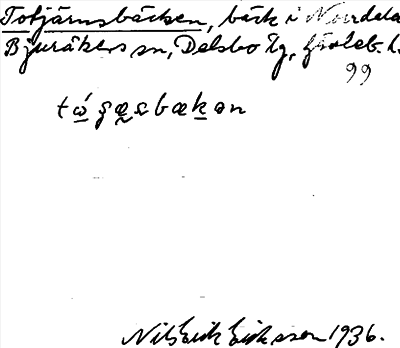 Totjärnsbäcken, bäck i Norrdela
Bjuråkers sn, Delsbo tg, Gävleb. l.
99
Nils Erik Eriksson 1936.